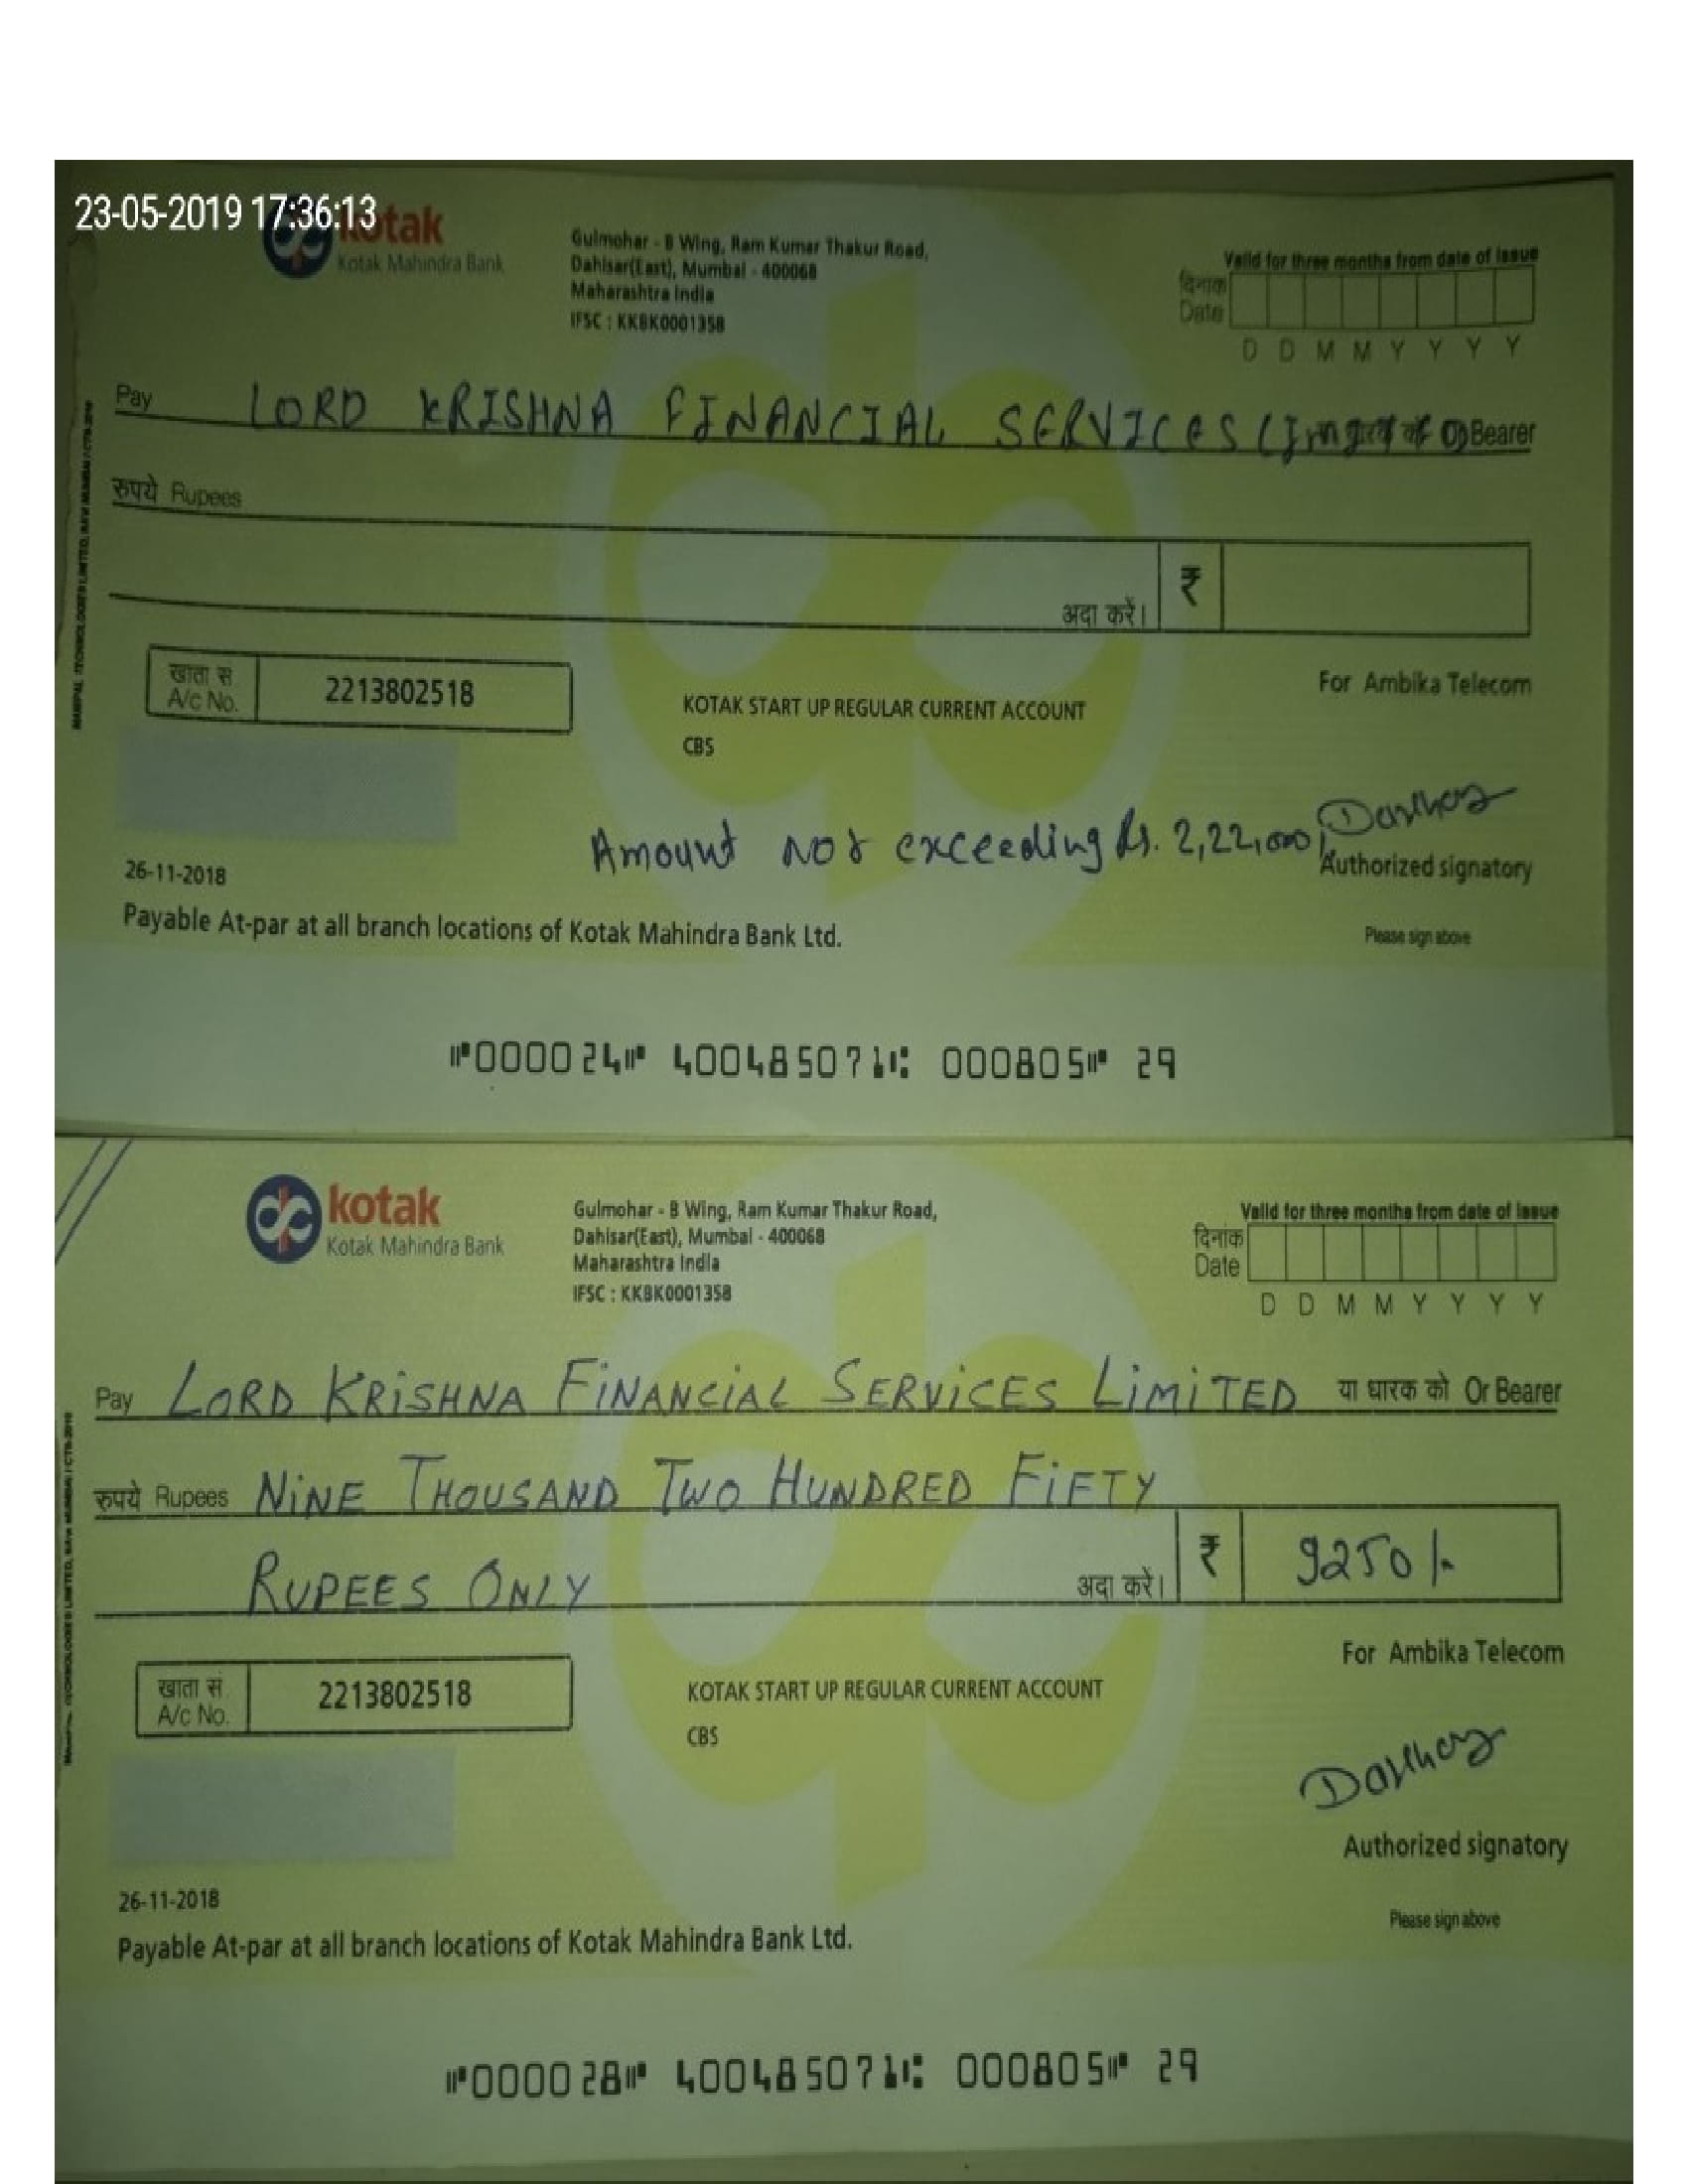 23-05-2019 17:36:13
kotak
Kotak Mahindra Bank
Gulmohar - B Wing, Ram Kumar Thakur Road,
Dahisar(East), Mumbai - 400068
Maharashtra India
IFSC : KKBK0001358
Valid for three months from date of issue
दिनांक
Date
D D M M Y Y Y Y
Pay LORD KRISHNA FINANCIAL SERVICES Bearer
रुपये Rupees
अदा करें। ₹
खाता सं
A/c No. 2213802518
KOTAK START UP REGULAR CURRENT ACCOUNT
CBS
For Ambika Telecom
Amount not exceeding Rs. 2,22,000/-
Authorized signatory
Please sign above
26-11-2018
Payable At-par at all branch locations of Kotak Mahindra Bank Ltd.
⑈000024⑈ 400485071⑆ 000805⑈ 29
kotak
Kotak Mahindra Bank
Gulmohar - B Wing, Ram Kumar Thakur Road,
Dahisar(East), Mumbai - 400068
Maharashtra India
IFSC : KKBK0001358
Valid for three months from date of issue
दिनांक
Date
D D M M Y Y Y Y
Pay LORD KRISHNA FINANCIAL SERVICES LIMITED या धारक को Or Bearer
रुपये Rupees NINE THOUSAND TWO HUNDRED FIFTY
RUPEES ONLY अदा करें। ₹ 9250/-
खाता सं.
A/c No. 2213802518
KOTAK START UP REGULAR CURRENT ACCOUNT
CBS
For Ambika Telecom
Authorized signatory
Please sign above
26-11-2018
Payable At-par at all branch locations of Kotak Mahindra Bank Ltd.
⑈000028⑈ 400485071⑆ 000805⑈ 29